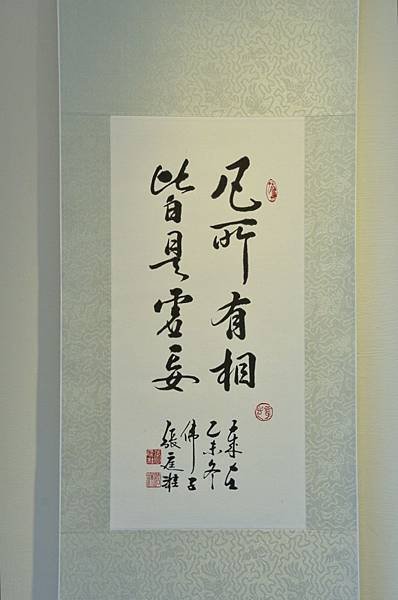 凡所有相
皆是虛妄
乙未冬
佛子
張庭雅